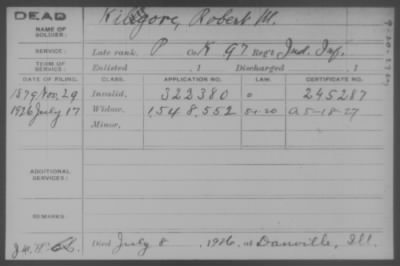 DEAD
NAME OF SOLDIER: Kilgore, Robert M.
SERVICE: Late rank, P Co K 97 Reg't Ind. Inf.
TERM OF SERVICE: Enlisted , 1 Discharged , 1
DATE OF FILING. CLASS. APPLICATION NO. LAW. CERTIFICATE NO.
1879 Nov. 29 Invalid, 322380 0 245287
1926 July 17 Widow, 1,548,552 5-1-20 A 5-18-27
Minor,
ADDITIONAL SERVICES:
REMARKS:
Died July 8, 1926, at Danville, Ill.